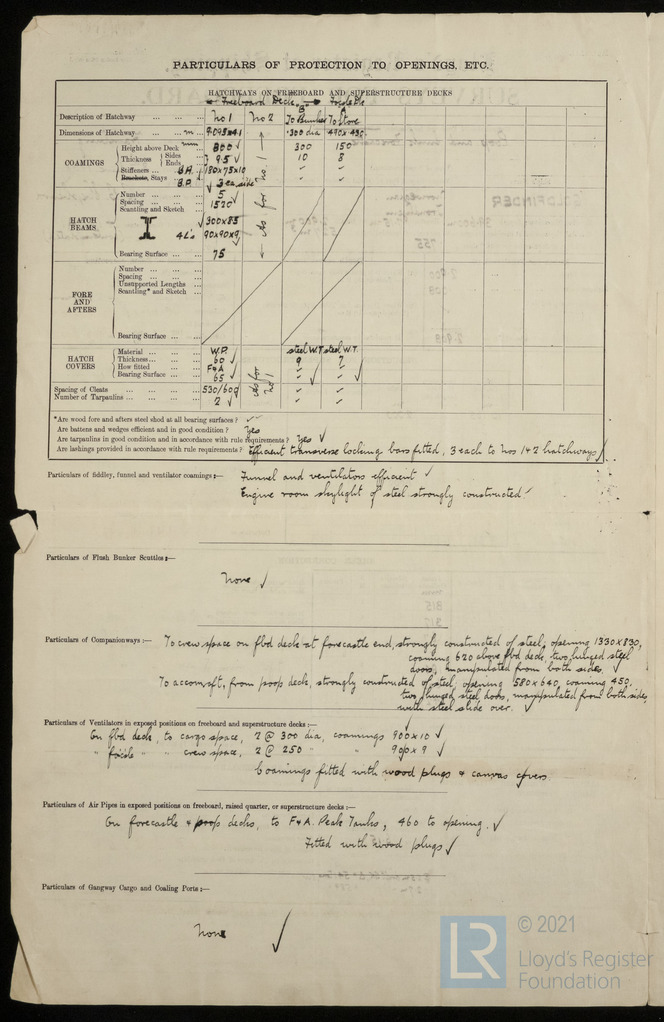 PARTICULARS OF PROTECTION TO OPENINGS, ETC.
HATCHWAYS ON FREEBOARD AND SUPERSTRUCTURE DECKS
Freeboard Deck
Description of Hatchway ... ... ... No 1 No 2 To Bunker To Store
Dimensions of Hatchway ... ... m 300 dia 490 x 430
COAMINGS
Height above Deck mm 800 300 150
Thickness { Sides Ends 9.5 10 8
Stiffeners ... B.A. 180x75x10
Brackets, Stays B.P. 3 ea. side
As for No. 1
HATCH BEAMS
Number ... ... ... 5
Spacing ... ... ... 1520
Scantling and Sketch 300x85
4 L's 90x90x9
Bearing Surface ... ... 75
FORE AND AFTERS
Number ... ... ...
Spacing ... ... ...
Unsupported Lengths ...
Scantling* and Sketch ...
Bearing Surface ... ...
HATCH COVERS
Material ... ... ... W.P. steel W.T. steel W.T.
Thickness ... ... ... 60 9 7
How fitted ... ... ... F&A
Bearing Surface ... ... 65
As for No 1
Spacing of Cleats ... ... ... 530/600
Number of Tarpaulins ... ... ... 2
*Are wood fore and afters steel shod at all bearing surfaces ?
Are battens and wedges efficient and in good condition ? Yes
Are tarpaulins in good condition and in accordance with rule requirements ? Yes
Are lashings provided in accordance with rule requirements ? Efficient transverse locking bars fitted, 3 each to Nos 1 & 2 hatchways
Particulars of fiddley, funnel and ventilator coamings :— Funnel and ventilators efficient
Engine room skylight of steel strongly constructed
Particulars of Flush Bunker Scuttles :—
None
Particulars of Companionways :— To crew space on fbd deck at forecastle end, strongly constructed of steel, opening 1330 x 830,
coaming 620 above fbd deck, two hinged steel
doors, manipulated from both sides.
To accom. aft, from poop deck, strongly constructed of steel, opening 580 x 640, coaming 450,
two hinged steel doors, manipulated from both sides,
with steel slide over.
Particulars of Ventilators in exposed positions on freeboard and superstructure decks :—
On fbd deck, to cargo space, 2 @ 300 dia, coamings 900 x 10
" " crew space, 2 @ 250 " " 900 x 9
Coamings fitted with wood plugs & canvas covers.
Particulars of Air Pipes in exposed positions on freeboard, raised quarter, or superstructure decks :—
On forecastle & poop decks, to F & A. Peak Tanks, 460 to opening.
Fitted with wood plugs
Particulars of Gangway Cargo and Coaling Ports :—
None
LR
© 2021
Lloyd's Register
Foundation